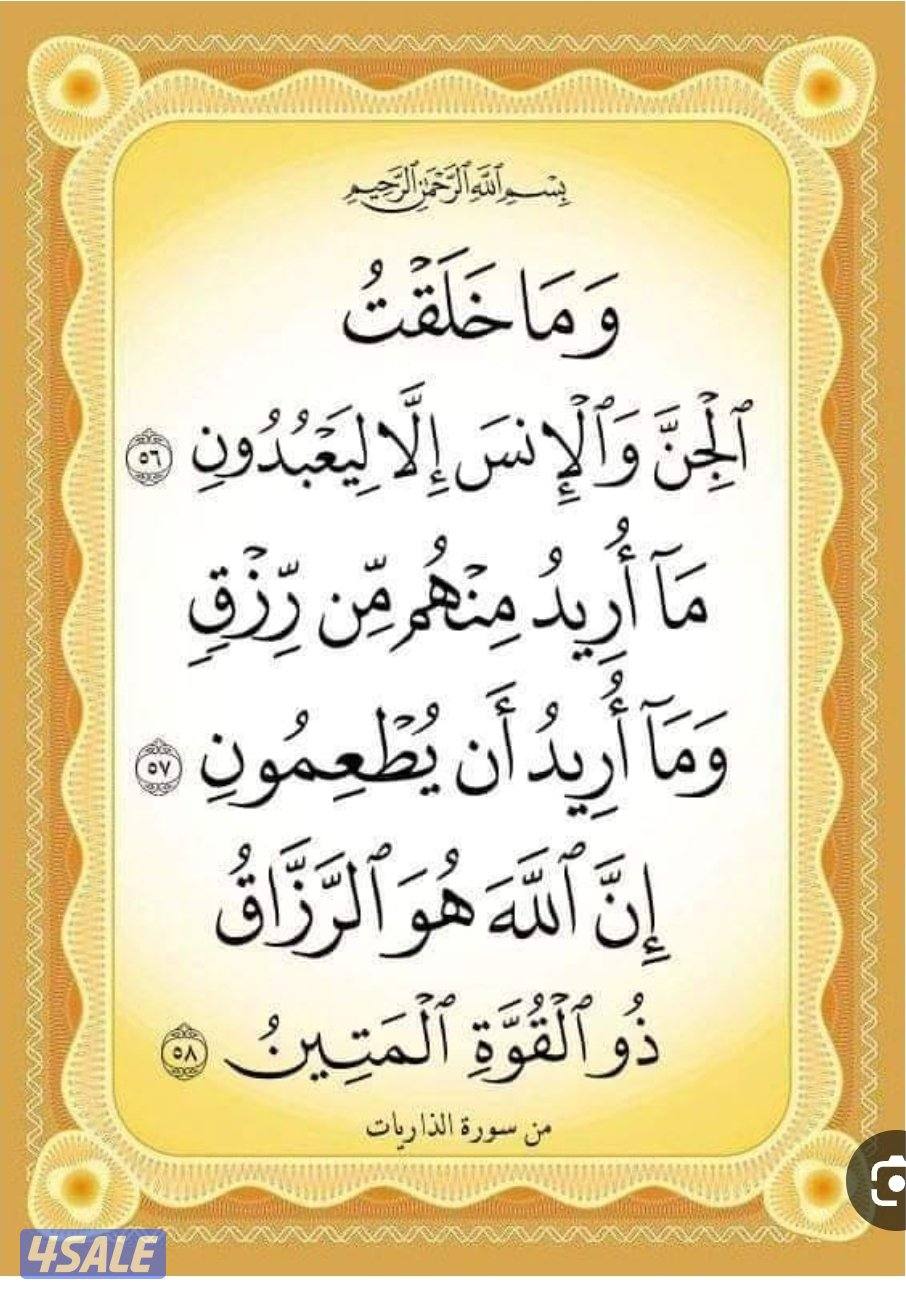 بِسْمِ ٱللَّهِ ٱلرَّحْمَٰنِ ٱلرَّحِيمِ
وَمَا خَلَقْتُ
ٱلْجِنَّ وَٱلْإِنسَ إِلَّا لِيَعْبُدُونِ ٥٦
مَآ أُرِيدُ مِنْهُم مِّن رِّزْقٍ
وَمَآ أُرِيدُ أَن يُطْعِمُونِ ٥٧
إِنَّ ٱللَّهَ هُوَ ٱلرَّزَّاقُ
ذُو ٱلْقُوَّةِ ٱلْمَتِينُ ٥٨
من سورة الذاريات
4SALE